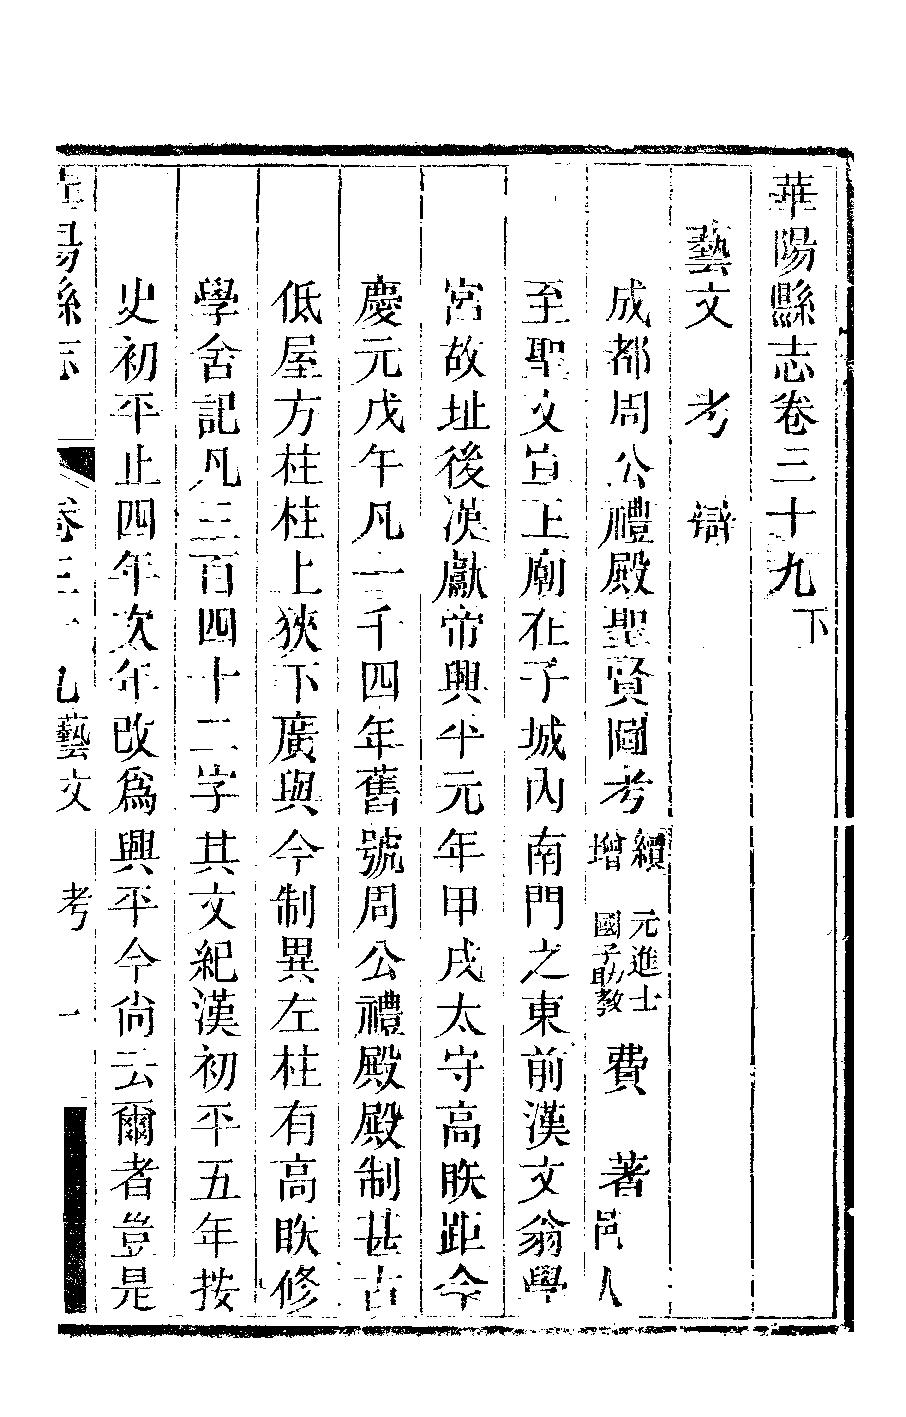 華陽縣志卷三十九下
藝文　考　辯
成都周公禮殿聖賢圖考續增元進士國子助教費著邑人
至聖文宣王廟在子城內南門之東前漢文翁學
宮故址後漢獻帝興平元年甲戌太守高䀢距今
慶元戊午凡一千四年舊號周公禮殿殿制甚古
低屋方柱柱上狹下廣與今制異左柱有高䀢修
學舍記凡三百四十二字其文紀漢初平五年按
史初平止四年次年改爲興平今尙云爾者豈是
華陽縣志　卷三十九藝文　考　一